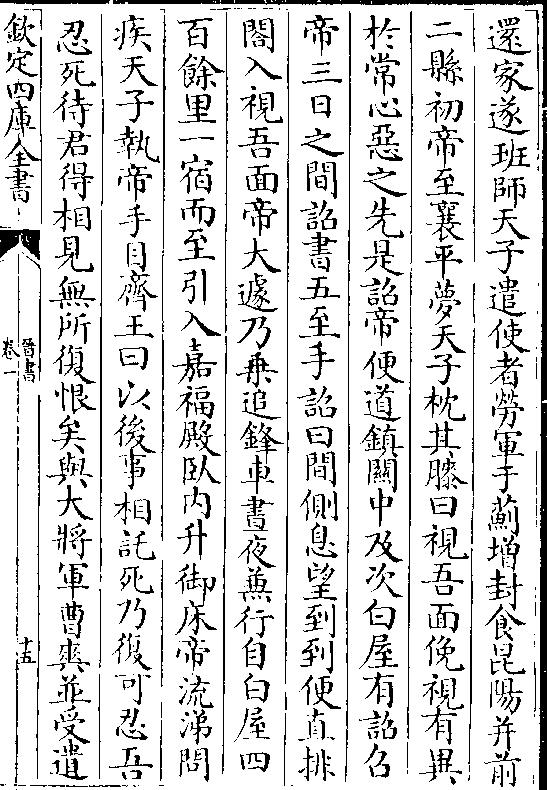 還家遂班師天子遣使者勞軍于薊增封食昆陽并前
二縣初帝至襄平夢天子枕其膝曰視吾面俛視有異
於常心惡之先是詔帝便道鎮關中及次白屋有詔召
帝三日之間詔書五至手詔曰間側息望到到便直排
閤入視吾面帝大遽乃乗追鋒車晝夜兼行自白屋四
百餘里一宿而至引入嘉福殿臥内升御床帝流涕問
疾天子執帝手目齊王曰以後事相託死乃復可忍吾
忍死待君得相見無所復恨矣與大將軍曹爽並受遺
欽定四庫全書
晉書
卷一
十五